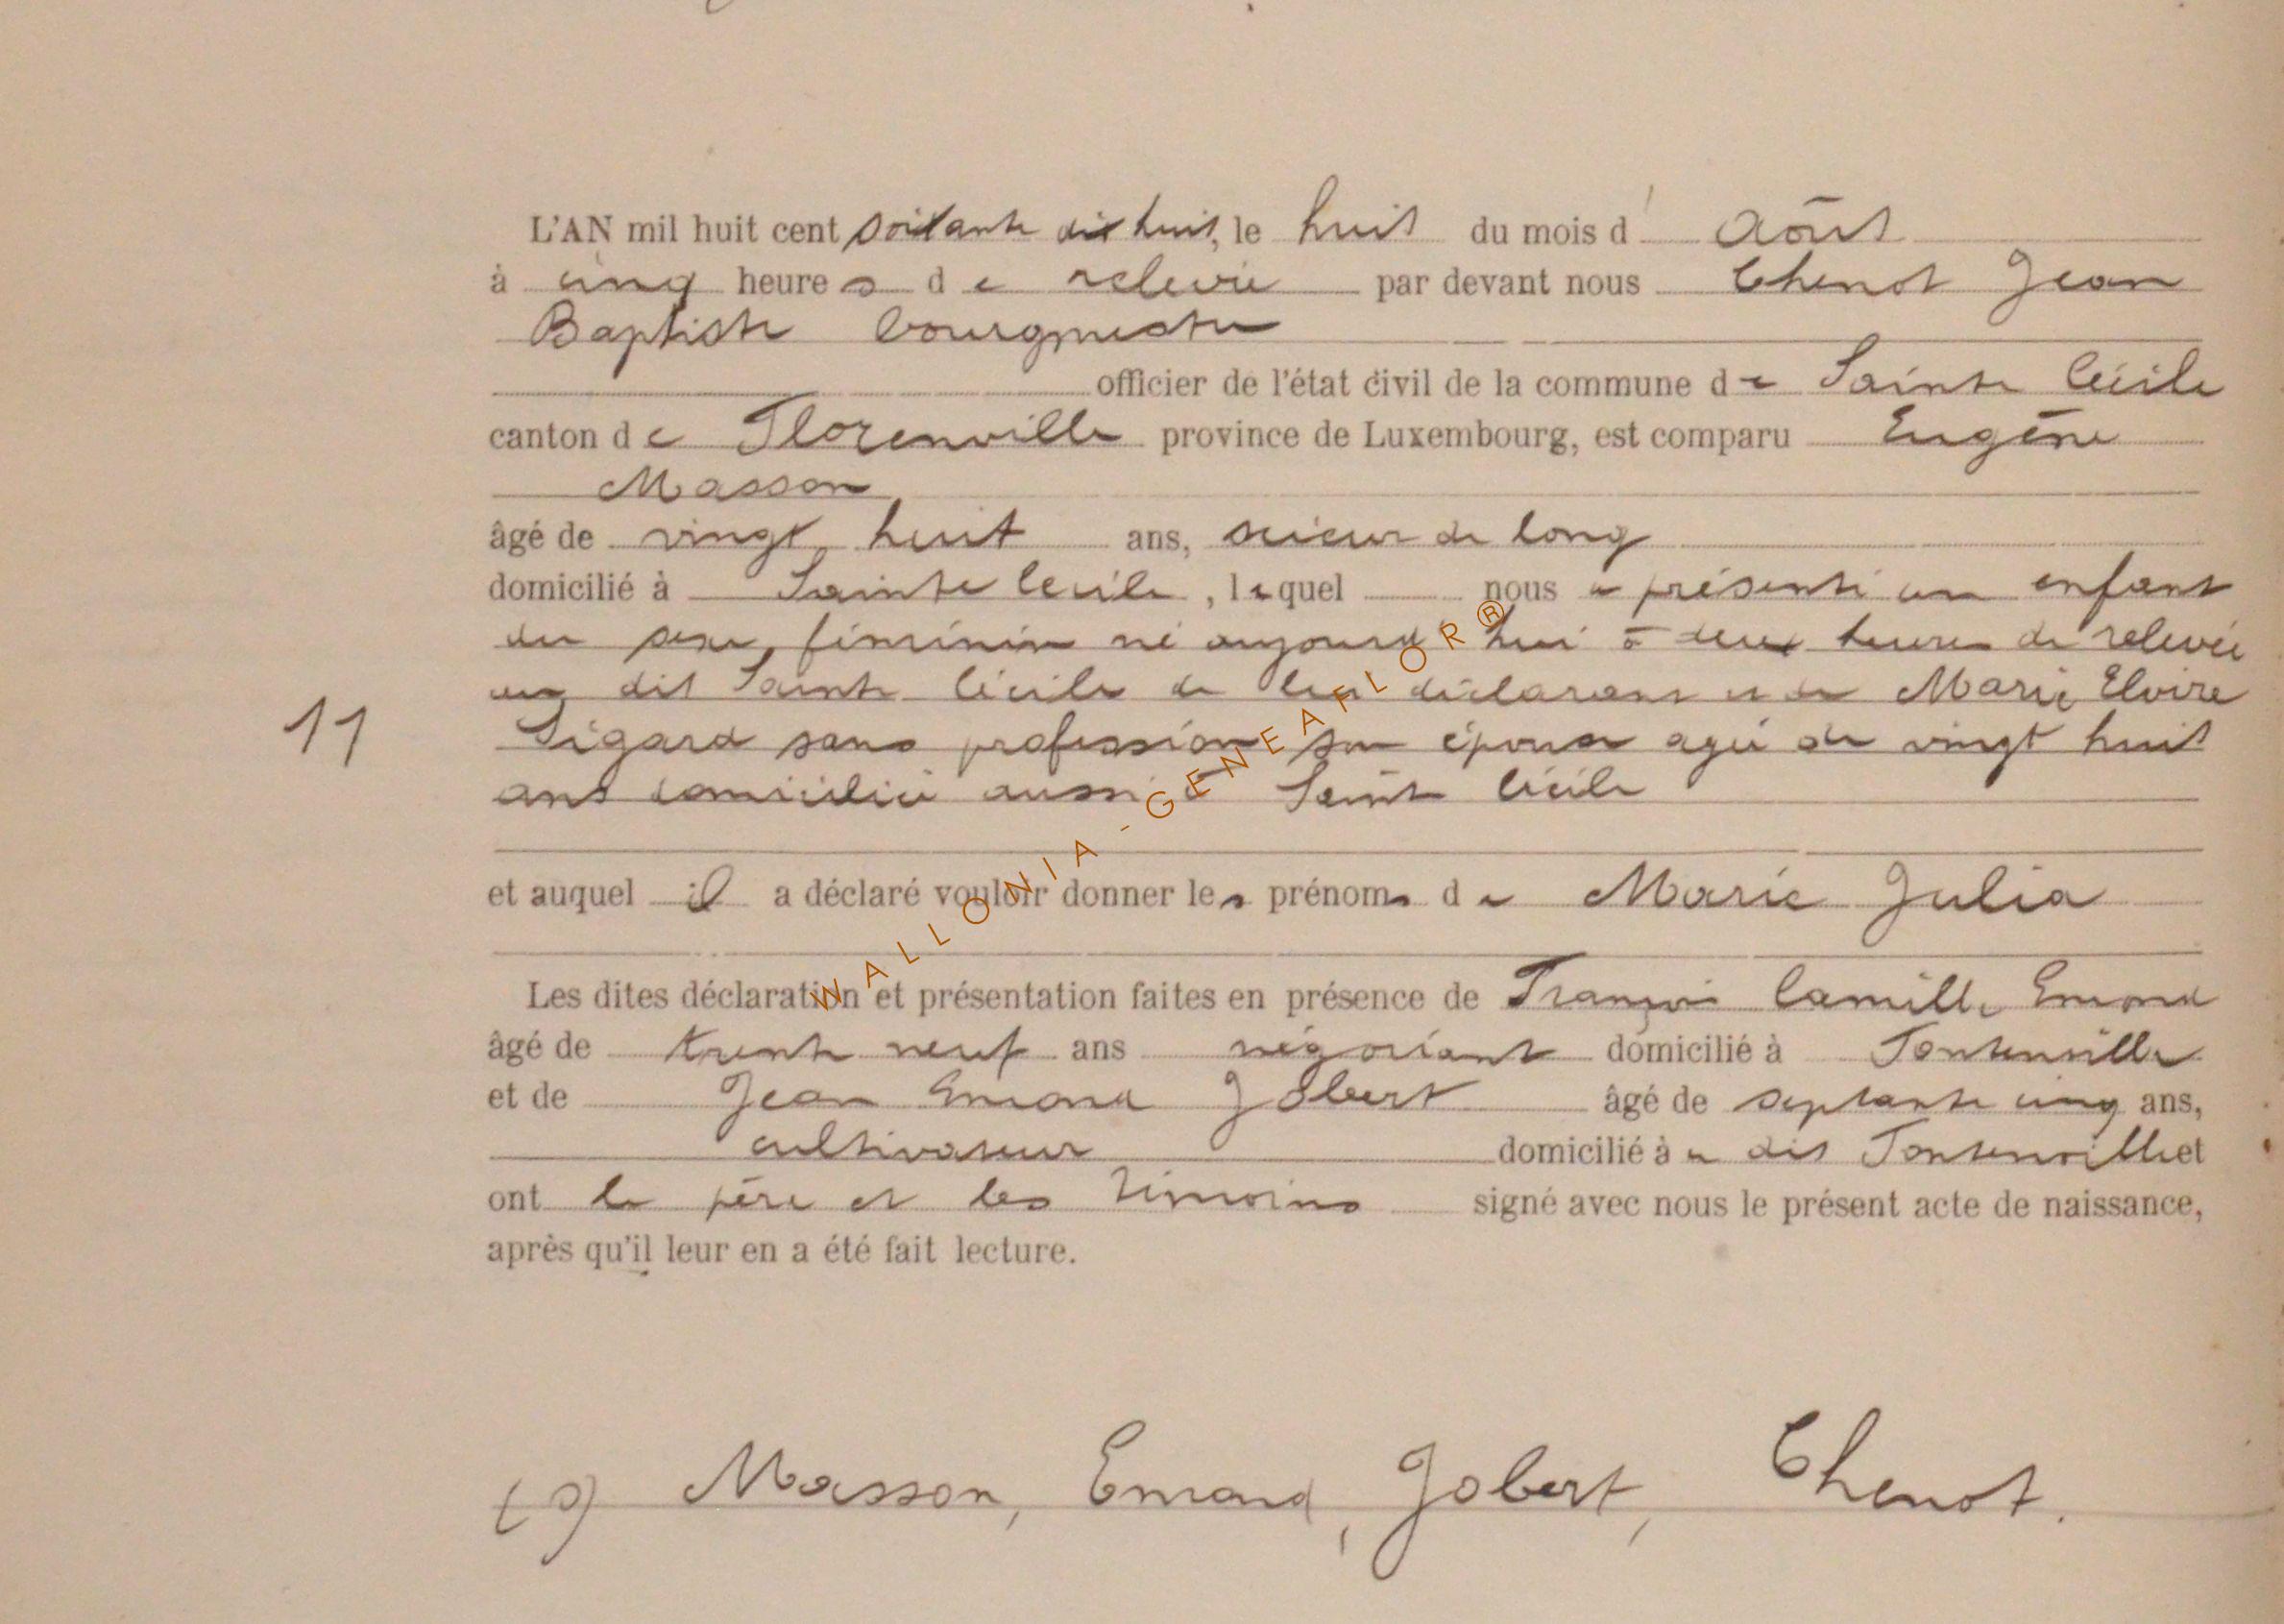 L'AN mil huit cent soixante dix huit, le huit du mois d' Août
à cinq heures de relevée par devant nous Chenot Jean
Baptiste bourgmestre
officier de l'état civil de la commune de Sainte Cécile
canton de Florenville province de Luxembourg, est comparu Eugène
Masson
âgé de vingt huit ans, scieur de long
domicilié à Sainte Cécile, lequel nous a présenté un enfant
du sexe féminin né aujourd'hui à deux heures de relevée
au dit Sainte Cécile de lui déclarant et de Marie Elvire
Sigard sans profession son épouse agée de vingt huit
ans domiciliée aussi à Sainte Cécile
11
et auquel il a déclaré vouloir donner les prénoms de Marie Julia
Les dites déclaration et présentation faites en présence de François Camille Emond
âgé de trente neuf ans négociant domicilié à Fontenville
et de Jean Emond Jobert âgé de septante cinq ans,
cultivateur domicilié à au dit Fontenville et
ont le père et les témoins signé avec nous le présent acte de naissance,
après qu'il leur en a été fait lecture.
(s) Masson, Emond, Jobert, Chenot.
WALLONIA-GENEAFLOR®